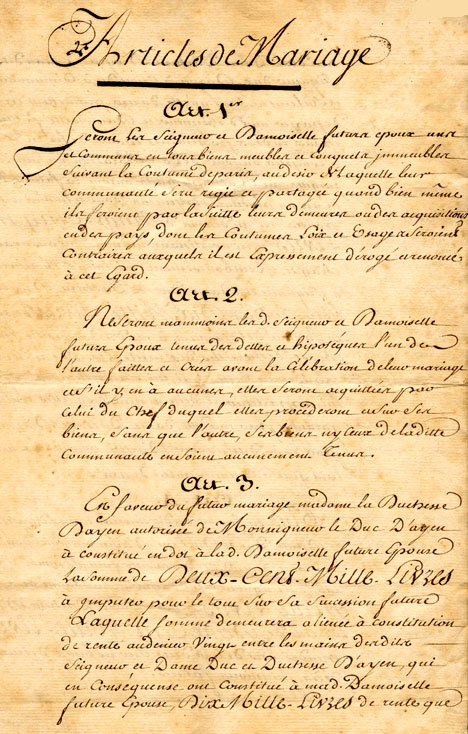 Articles de Mariage
Art. 1er
Seront les Seigneur et Damoiselle futurs epoux uns
et Communs en tous biens meubles et conquets immeubles
Suivant la Coutume de paris, au desir de Laquelle leur
communauté Sera regie et partagée quand bien même
ils feroient par la Suitte leurs demeures ou des acquisitions
en des pays, dont les Coutumes Loix et Usages Seroient
Contraires auxquels il est Expressement dérogé et renoncé
à cet Egard.
Art. 2.
Ne Seront neanmoins les d. Seigneur et Damoiselle
futurs Epoux tenus des dettes et hipoteques l'un de
l'autre faittes et Créés avant la Célébration de leur mariage
et S'il y en à aucunes, elles Seront acquittées par
Celui du Chef duquel elles procéderont et Sur Ses
biens, Sans que l'autre, Ses biens ny Ceux de la ditte
Communauté en Soient aucunement Tenus.
Art. 3.
En faveur du futur mariage madame la Duchesse
Dayen autorisée de Monsigneur le Duc D'ayen
à constitué en dot à la d. Damoiselle future Epouse
La Somme de Deux-Cent-Mille-Livres
à imputer pour le tout Sur Sa Succession future
Laquelle Somme demeurera aliénée à constitution
de rente au denier Vingt entre les mains desdits
Seigneur et Dame Duc et Duchesse Dayen, qui
en Conséquense ont Constitué à mad. Damoiselle
future Epouse, Dix Mille-Livres de rente que